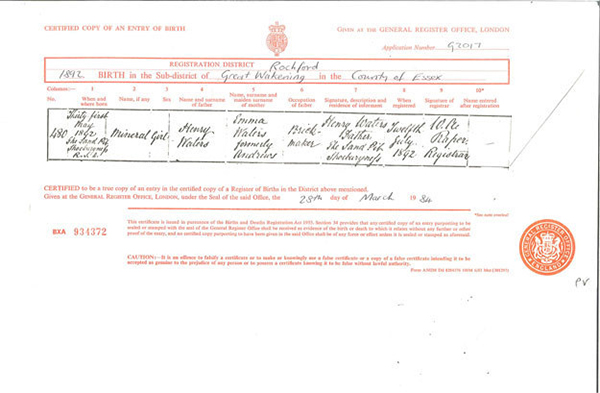 CERTIFIED COPY OF AN ENTRY OF BIRTH
GIVEN AT THE GENERAL REGISTER OFFICE, LONDON
Application Number G2017
REGISTRATION DISTRICT Rochford
1892 BIRTH in the Sub-district of Great Wakering in the County of Essex
Columns:— 1 2 3 4 5 6 7 8 9 10*
No. When and where born Name, if any Sex Name and surname of father Name, surname and maiden surname of mother Occupation of father Signature, description and residence of informant When registered Signature of registrar Name entered after registration
480 Thirty first May 1892 The Sand Pit Shoeburyness R.S.D. Mineral Girl Henry Waters Emma Waters formerly Andrews Brickmaker Henry Waters Father The Sand Pit Shoeburyness Twelfth July 1892 Raper Registrar
CERTIFIED to be a true copy of an entry in the certified copy of a Register of Births in the District above mentioned.
Given at the GENERAL REGISTER OFFICE, LONDON, under the Seal of the said Office, the 28th day of March 1984
*See note overleaf
BXA 934372
This certificate is issued in pursuance of the Births and Deaths Registration Act 1953. Section 34 provides that any certified copy of an entry purporting to be sealed or stamped with the seal of the General Register Office shall be received as evidence of the birth or death to which it relates without any further or other proof of the entry, and no certified copy purporting to have been given in the said Office shall be of any force or effect unless it is sealed or stamped as aforesaid.
CAUTION:—It is an offence to falsify a certificate or to make or knowingly use a false certificate or a copy of a false certificate intending it to be accepted as genuine to the prejudice of any person or to possess a certificate knowing it to be false without lawful authority.
GENERAL REGISTER OFFICE
ENGLAND
PV